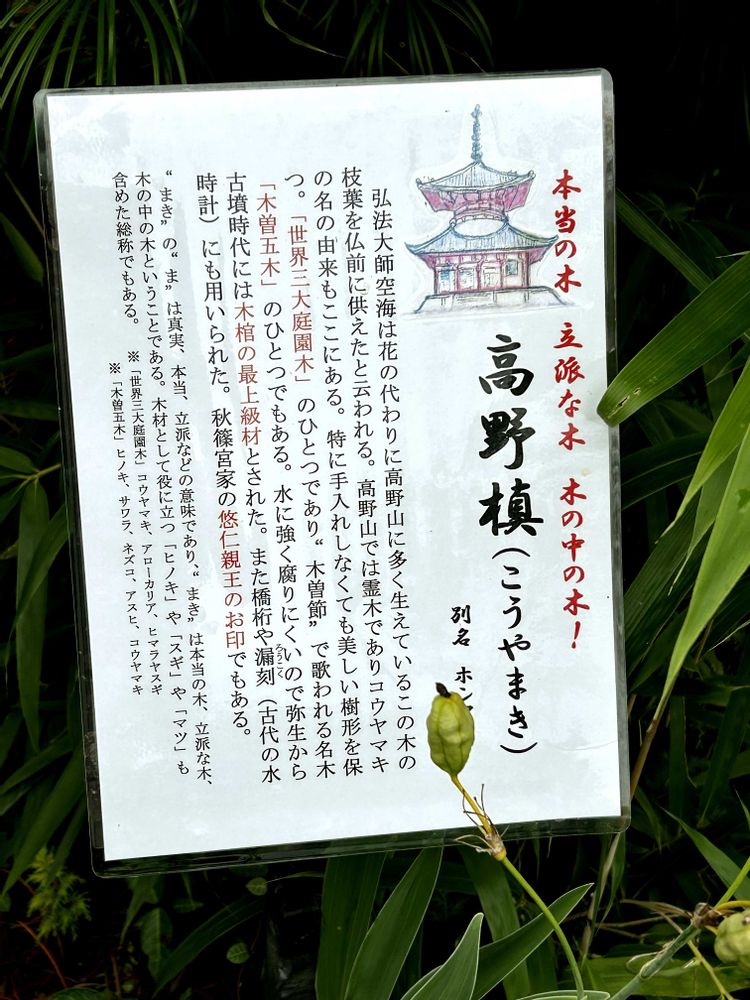 本当の木 立派な木 木の中の木！
高野槙（こうやまき）
別名 ホン
弘法大師空海は花の代わりに高野山に多く生えているこの木の
枝葉を仏前に供えたと云われる。高野山では霊木でありコウヤマキ
の名の由来もここにある。特に手入れしなくても美しい樹形を保
つ。「世界三大庭園木」のひとつであり“木曽節”で歌われる名木
「木曽五木」のひとつでもある。水に強く腐りにくいので弥生から
古墳時代には木棺の最上級材とされた。また橋桁や漏刻（古代の水
ろうこく
時計）にも用いられた。秋篠宮家の悠仁親王のお印でもある。
“まき”の“ま”は真実、本当、立派などの意味であり、“まき”は本当の木、立派な木、
木の中の木ということである。木材として役に立つ「ヒノキ」や「スギ」や「マツ」も
含めた総称でもある。
※「世界三大庭園木」コウヤマキ、アローカリア、ヒマラヤスギ
※「木曽五木」ヒノキ、サワラ、ネズコ、アスヒ、コウヤマキ